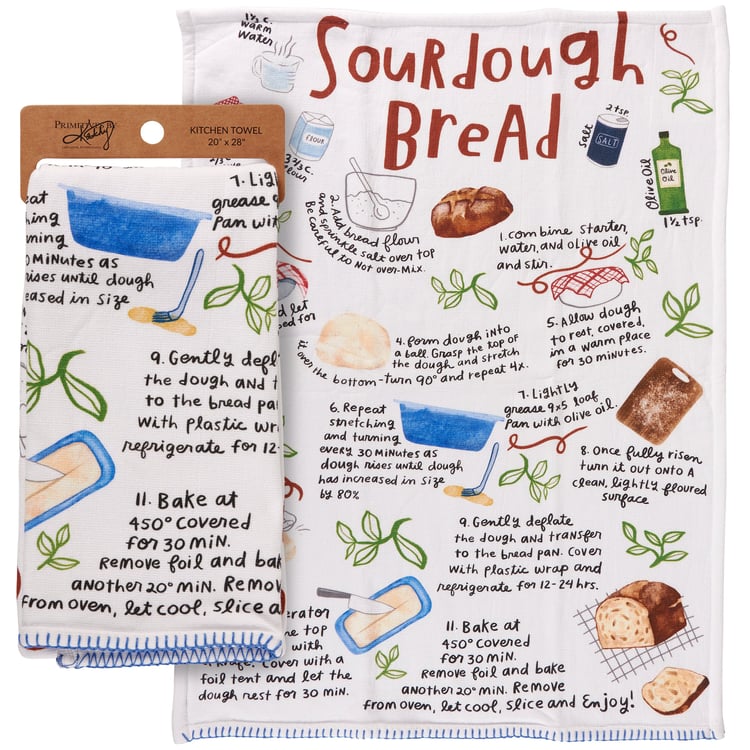 PRIMITIVES BY
Kathy
KITCHEN TOWEL
20" x 28"
7. Lig
grease 9
Pan wit
0 Minutes as
rises until dough
eased in Size
9. Gently defla
the dough and t
to the bread pa
with plastic wr
refrigerate for 12-
11. Bake at
450° covered
for 30 Min.
Remove foil and bak
another 20° Min. Remov
from oven, let cool, slice a
1½ c.
warm
water
Sourdough
Bread
FLOUR
3 ⅔ c.
flour
2 tsp
Salt
SALT
Olive Oil
Olive
Oil
1½ tsp.
1. Combine starter,
water, and olive oil
and stir.
2. Add bread flour
and sprinkle salt over top
Be careful to Not over-Mix.
d let
ed for
4. Form dough into
a ball. Grasp the top of
the dough and stretch
it over the bottom-turn 90° and repeat 4x.
5. Allow dough
to rest, covered,
in a warm place
for 30 minutes.
6. Repeat
stretching
and turning
every 30 Minutes as
dough rises until dough
has increased in Size
by 80%
7. Lightly
grease 9x5 loaf
Pan with olive oil.
8. Once fully risen
turn it out onto A
clean, lightly floured
surface
9. Gently deflate
the dough and transfer
to the bread pan. Cover
with plastic wrap and
refrigerate for 12-24 hrs.
erator
e top
with
Cover with a
foil tent and let the
dough rest for 30 min.
11. Bake at
450° covered
for 30 Min.
Remove foil and bake
another 20° Min. Remove
from oven, let cool, slice and Enjoy!